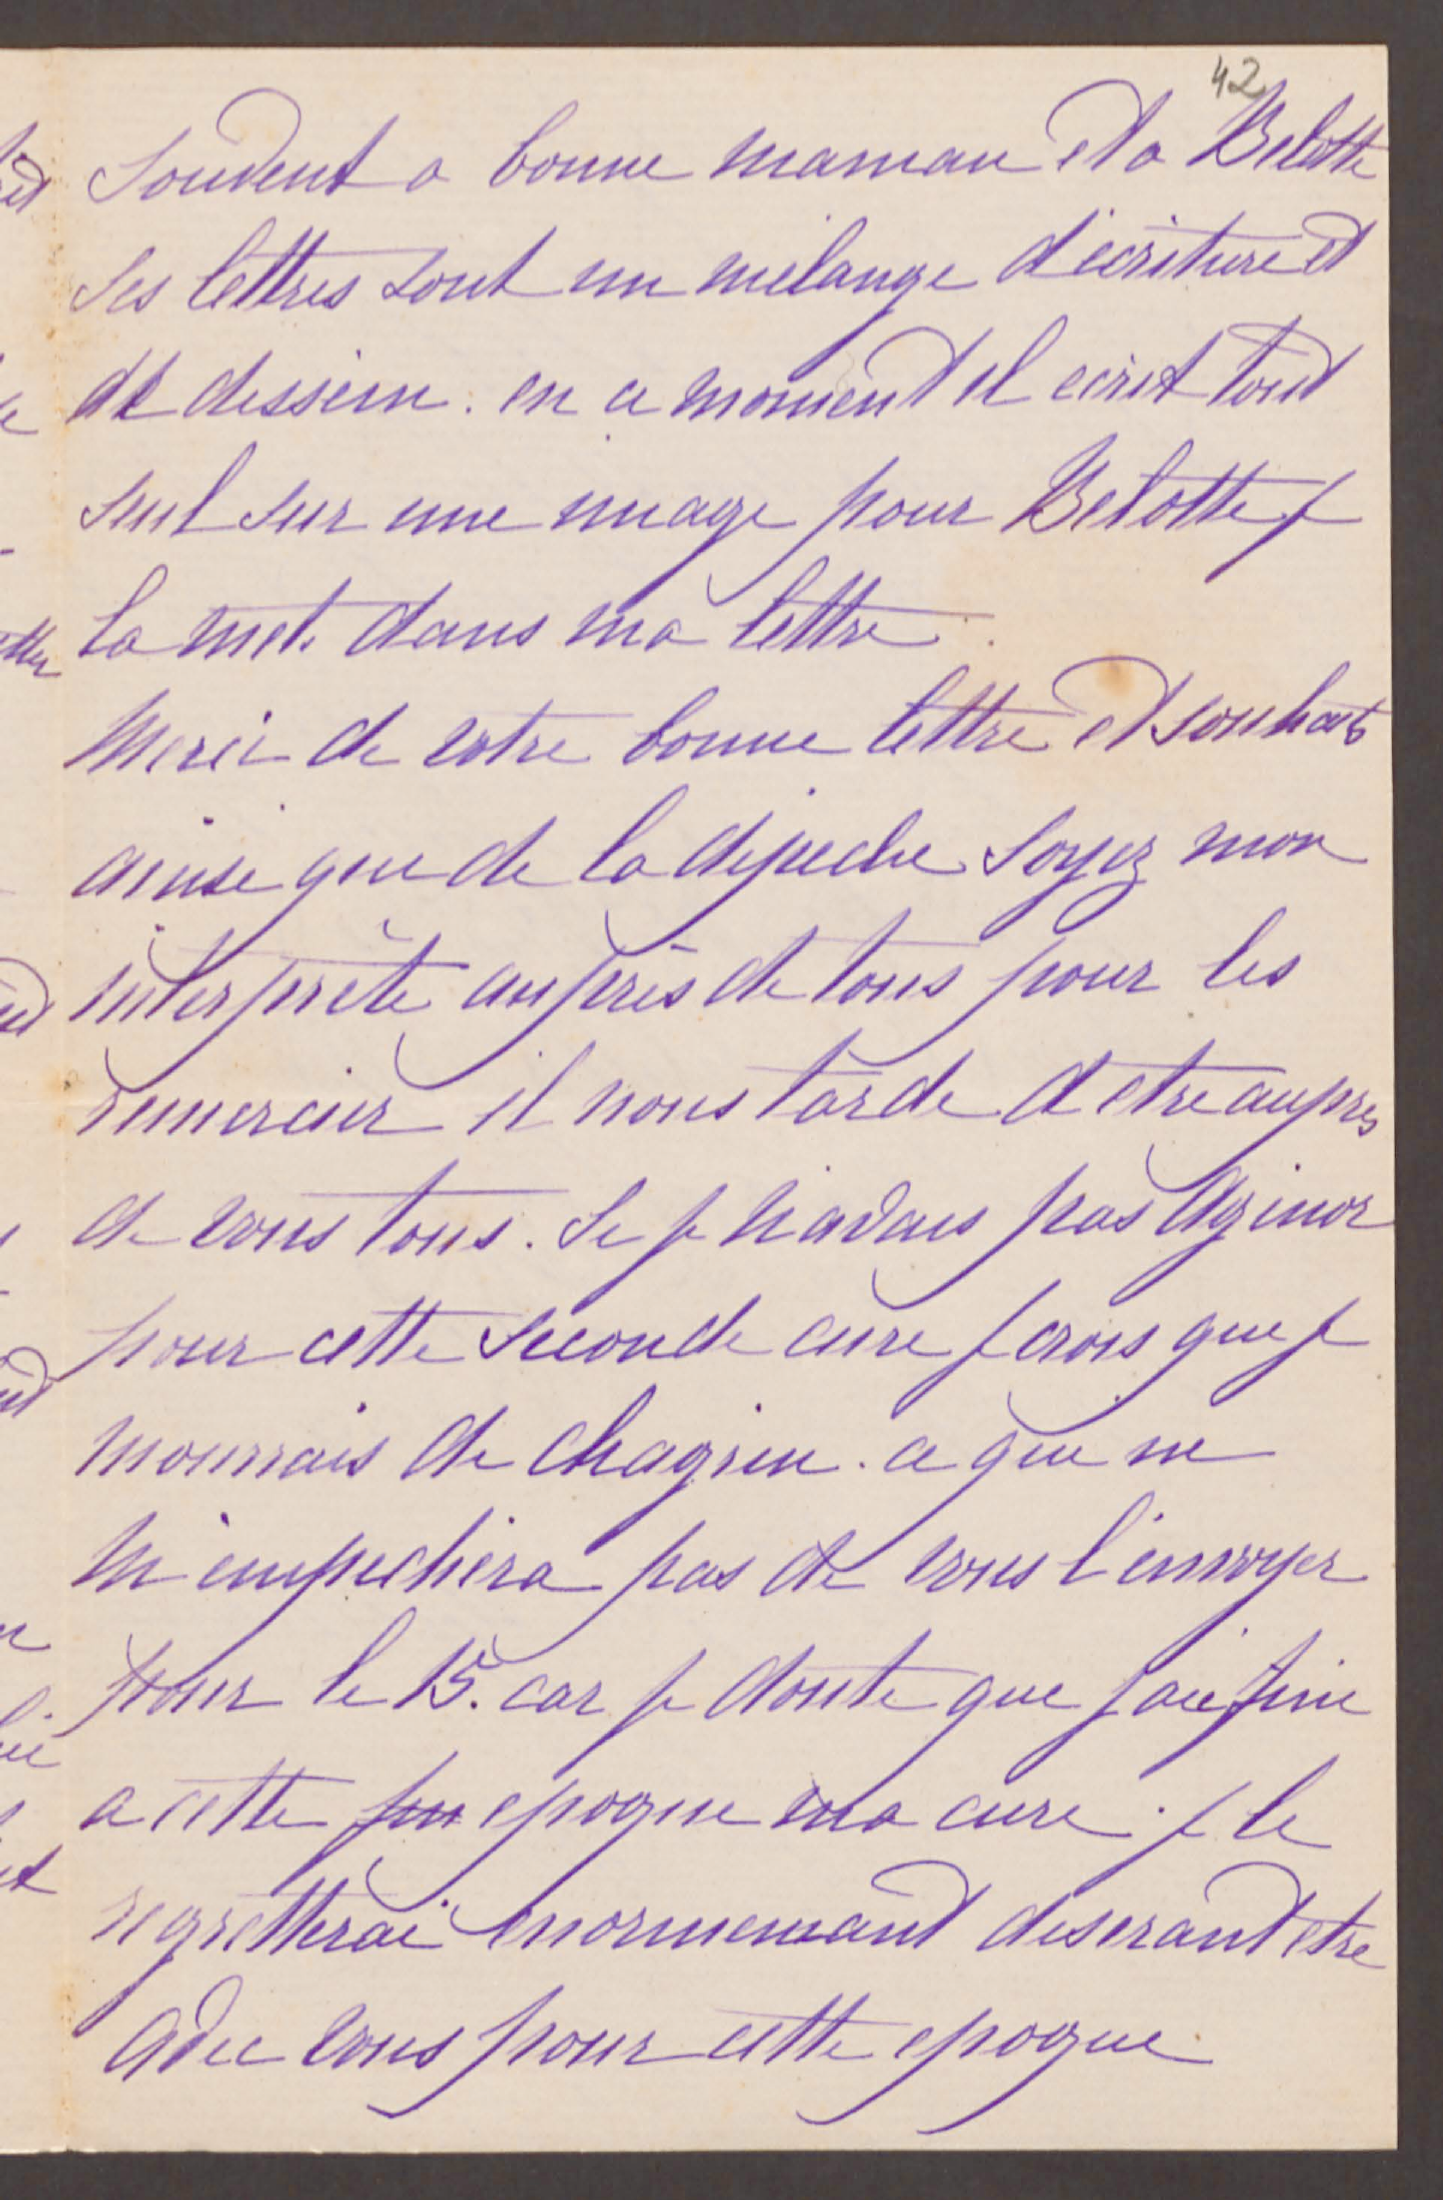 42
Souvent a bonne maman et a Belotte
Ses lettres sont un melange d'écriture et
de dessein. en ce moment il ecrit tout
seul sur une image pour Belotte je
la met. dans ma lettre.
Merci de votre bonne lettre et souhaits
ainsi que de la dépeche Soyez mon
interprête auprès de tous pour les
remercier il nous tarde d etre aupres
de vous tous. Si je n'avais pas Agénor
pour cette seconde cure je crois que je
mourrais de chagrin. ce qui ne
m'empechera pas de vous l'envoyer
pour le 15. car je doute que j'aie fini
a cette epoque ma cure. je le
regretterai enormement desirant etre
avec vous pour cette epoque